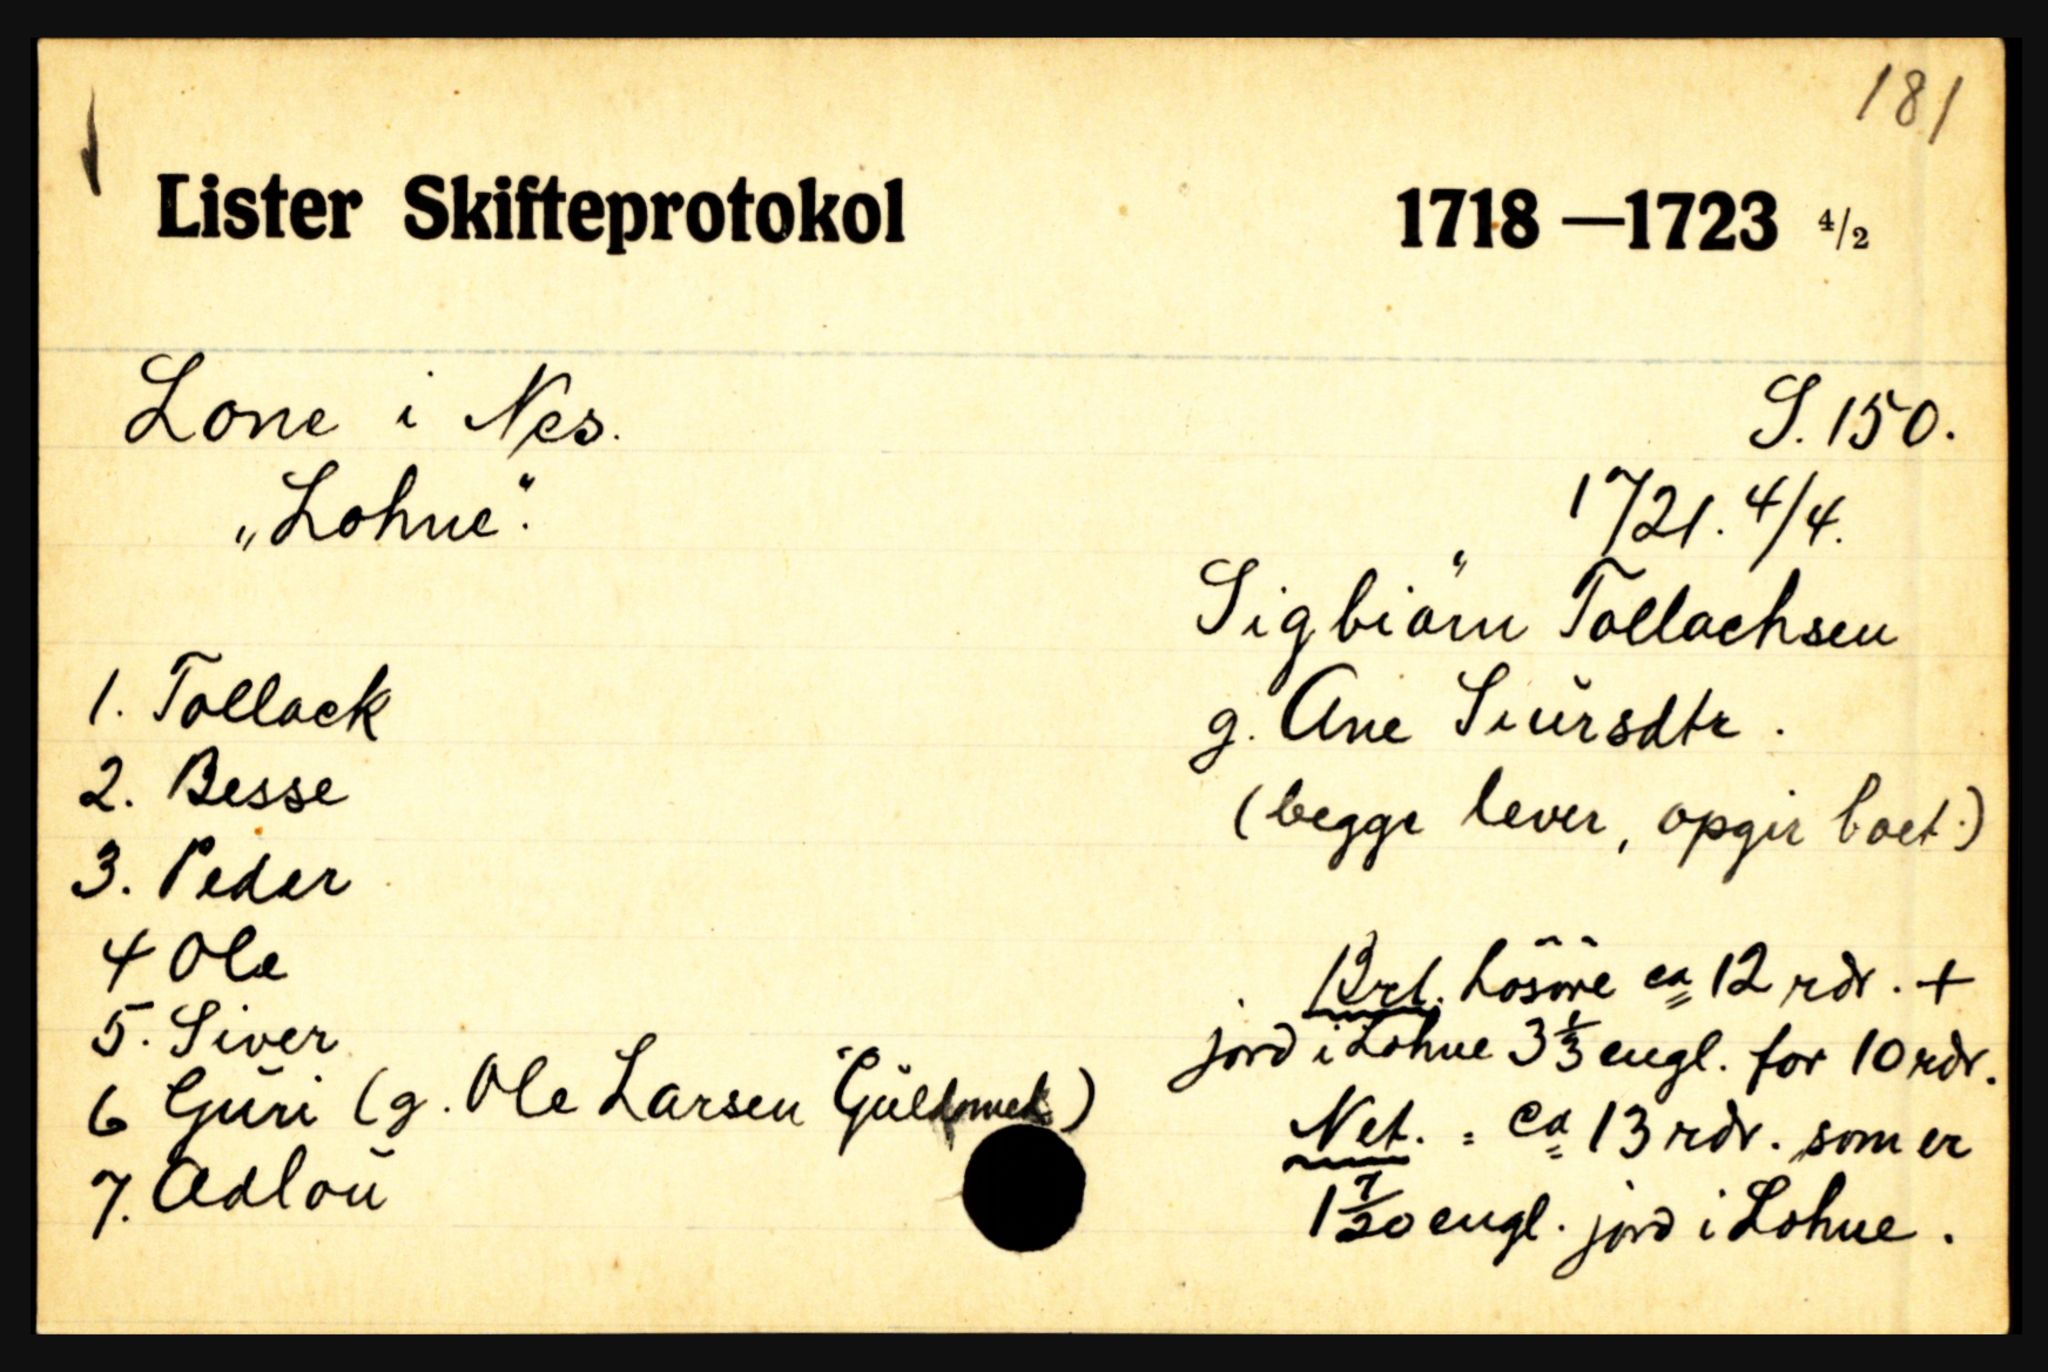 181
Lister Skifteprotokol 1718 —1723 4/2
Lone i Nes. S. 150.
„Lohne“. 1721. 4/4.
Sigbiörn Tollachsen
g. Ane Siŭrsdtr.
(begge lever, opgir boet.)
1. Tollack
2. Besse
3. Peder
4 Ole
5. Siver
6 Gŭri (g. Ole Larsen
7. Adloŭ
Brt. Lösöre ca 12 rdr. +
jord i Lohne 3 1/3 engl. for 10 rdr.
Net. = ca 13 rdr. som er
1 7/20 engl. jord i Lohne.